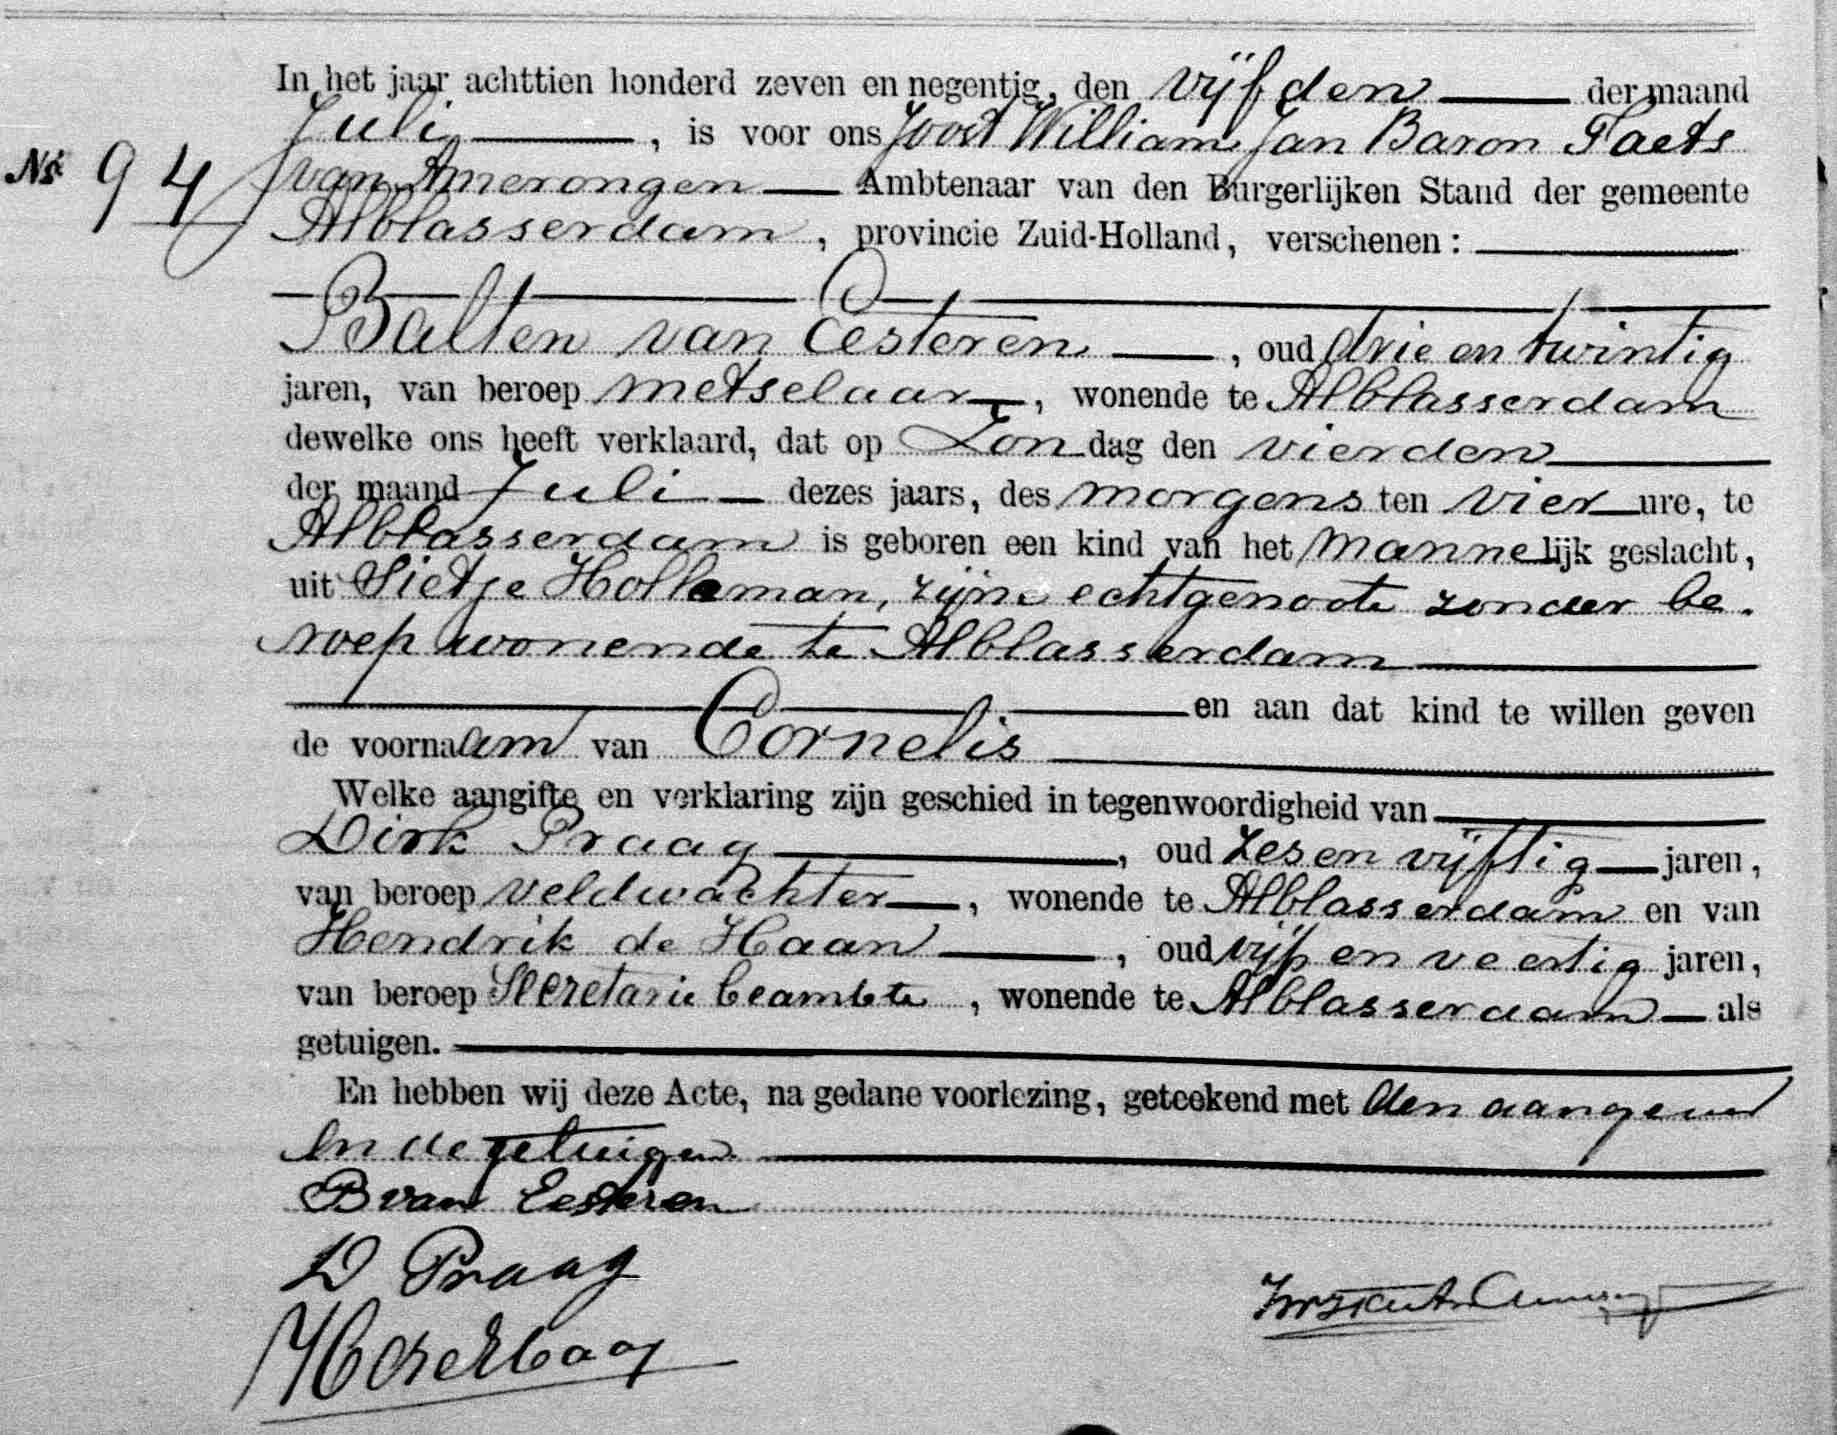 In het jaar achttien honderd zeven en negentig, den vijfden der maand
Juli, is voor ons Joost William Jan Baron Taets
No. 94 van Amerongen Ambtenaar van den Burgerlijken Stand der gemeente
Alblasserdam, provincie Zuid-Holland, verschenen:
Balten van Eesteren, oud drie en twintig
jaren, van beroep metselaar, wonende te Alblasserdam
dewelke ons heeft verklaard, dat op Zondag den vierden
der maand Juli dezes jaars, des morgens ten vier ure, te
Alblasserdam is geboren een kind van het mannelijk geslacht,
uit Sietje Holleman, zijne echtgenoote zonder be-
roep wonende te Alblasserdam
en aan dat kind te willen geven
de voornaam van Cornelis
Welke aangifte en verklaring zijn geschied in tegenwoordigheid van
Dirk Praag, oud zes en vijftig jaren,
van beroep veldwachter, wonende te Alblasserdam en van
Hendrik de Haan, oud vijf en veertig jaren,
van beroep Secretarie beambte, wonende te Alblasserdam als
getuigen.
En hebben wij deze Acte, na gedane voorlezing, geteekend met den aangever
en de getuigen
B van Eesteren
D Praag
H de Haan